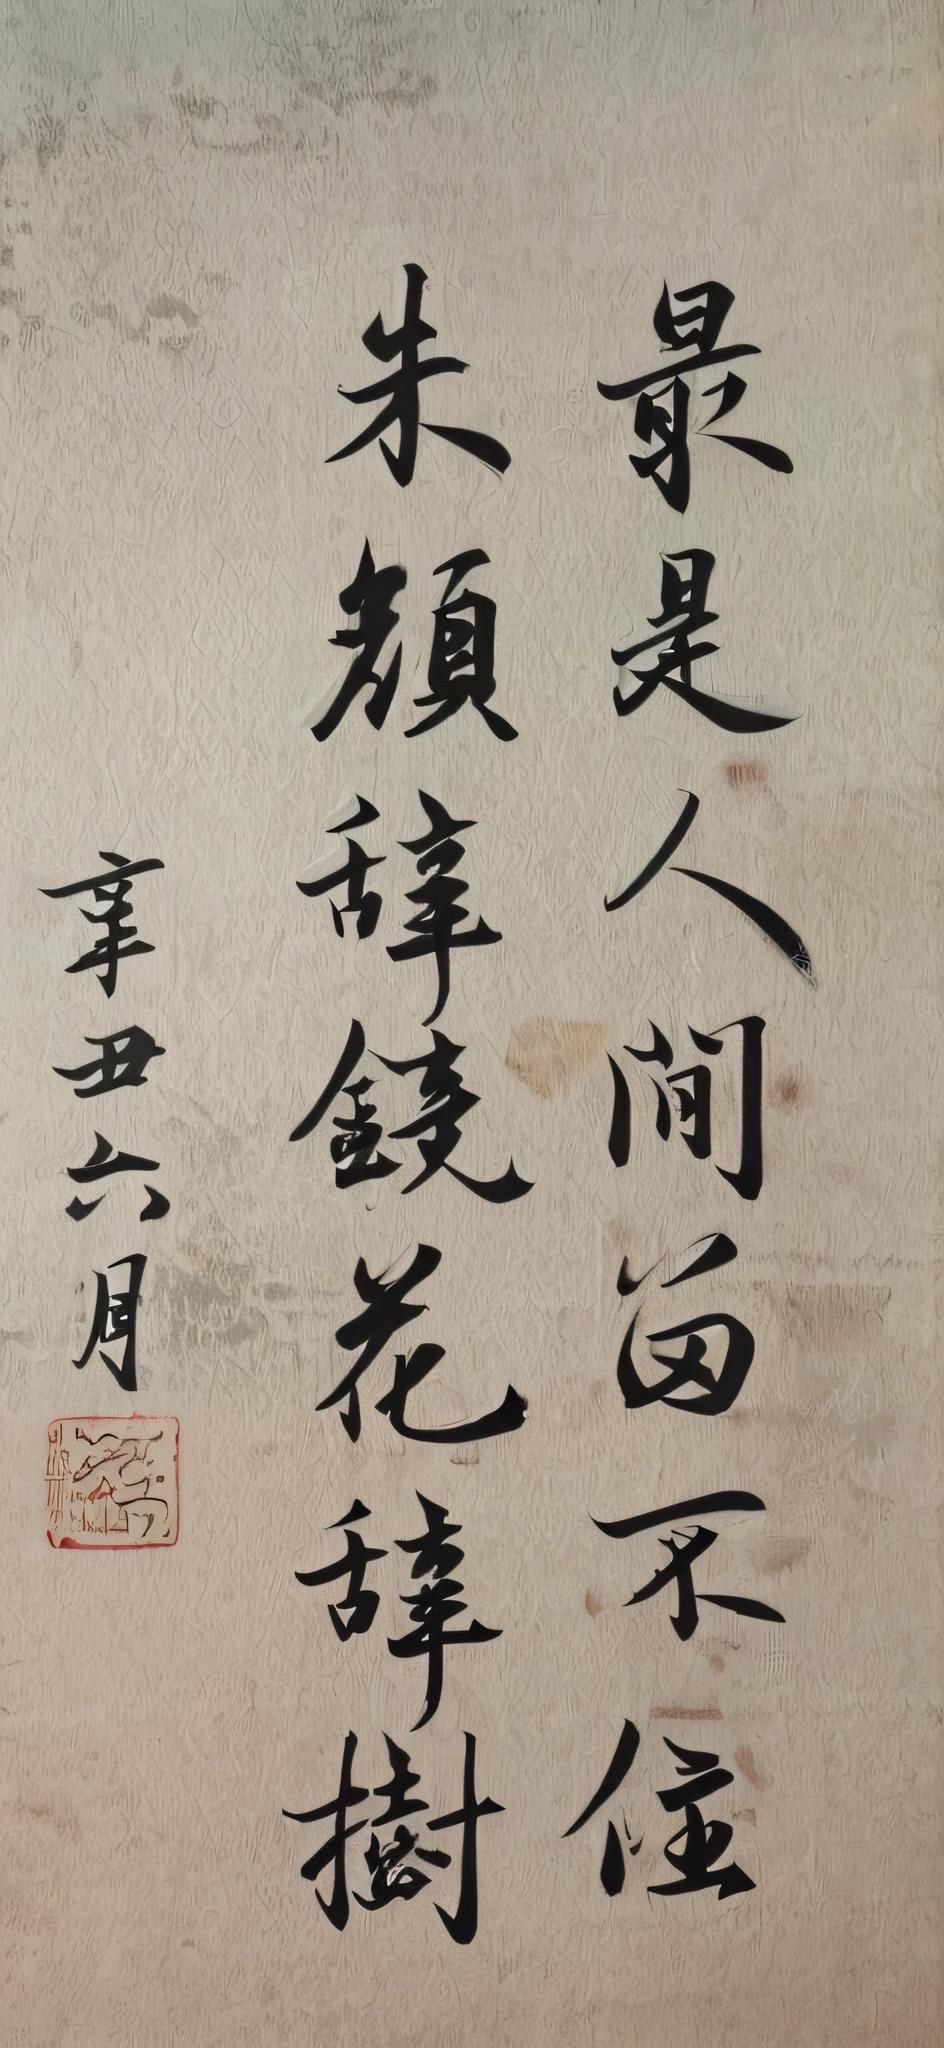 最是人間留不住
朱顏辭鏡花辭樹
辛丑六月